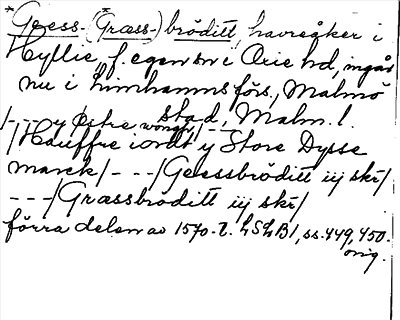 *Geess- (Græss-)bröditt, havreåker i
Hyllie, f. egen sn i Oxie hd, ingår
nu i Limhamns förs, Malmö
stad, Malm. l.
/--- y Østre wongh/---
/Hauffre iordt y Store Dysse
marck/---/Geessbröditt iij skr/
---/Græssbröditt iij skr/
förra delen av 1570-t. LSLB1, ss. 449, 450.
orig.